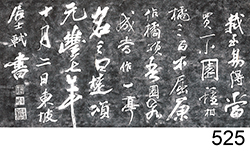 栽至易得當
買一小園種柑
橘三百本屈原
作橘頌吾園若
成當作一亭
名之曰楚頌
元豐七年
十月二日東坡
居士軾書
525